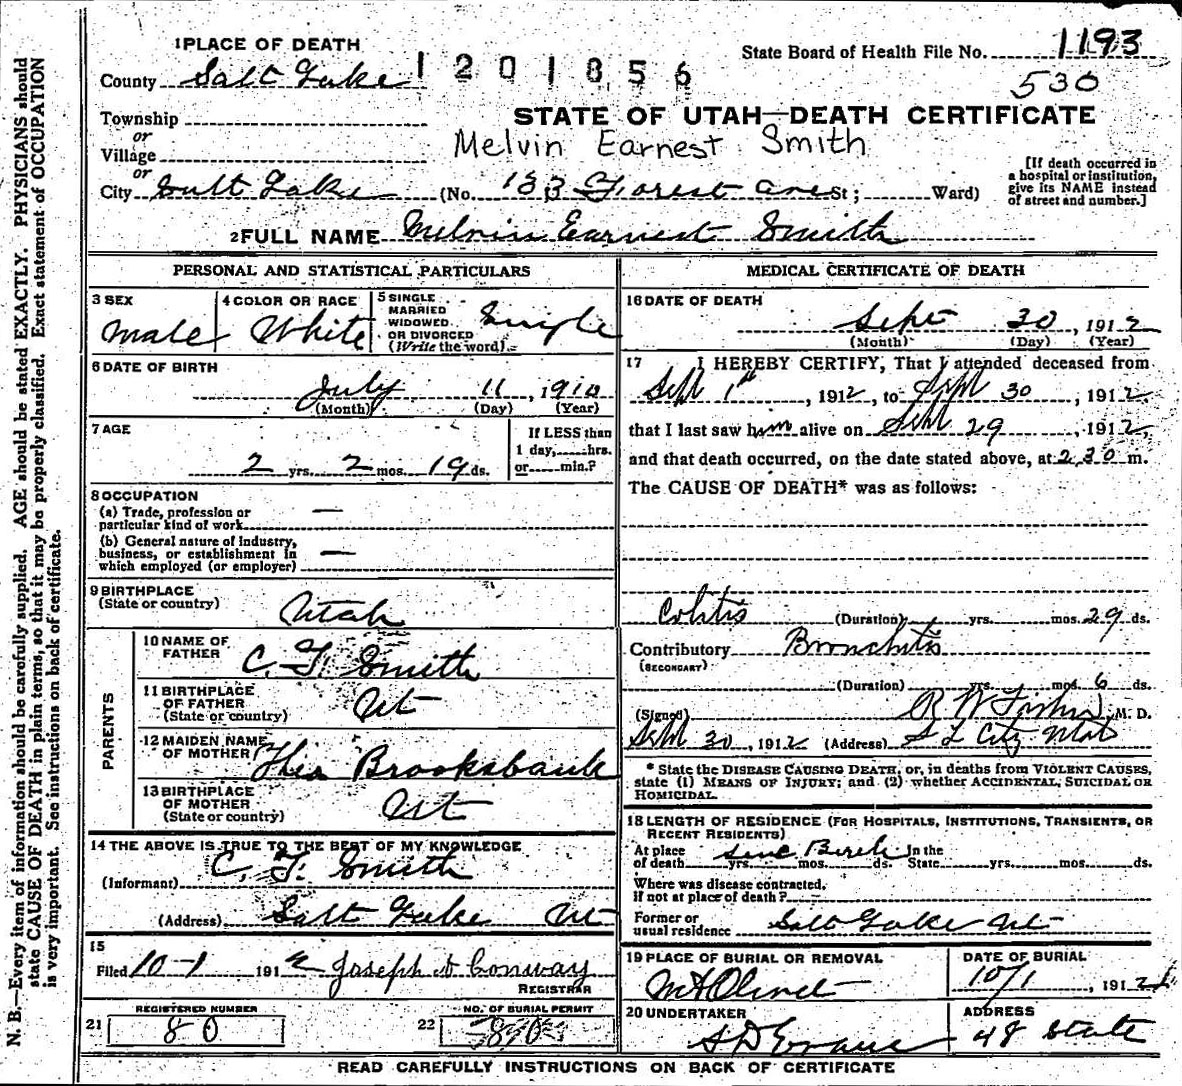 1 PLACE OF DEATH
State Board of Health File No. 1193
County Salt Lake 1 2 0 1 8 5 6
530
STATE OF UTAH—DEATH CERTIFICATE
Township
or
Village
Melvin Earnest Smith
or
City Salt Lake (No. 133 Forest ave St; Ward)
[If death occurred in
a hospital or institution,
give its NAME instead
of street and number.]
2 FULL NAME Melvin Earnest Smith
PERSONAL AND STATISTICAL PARTICULARS
3 SEX
Male
4 COLOR OR RACE
White
5 SINGLE
MARRIED
WIDOWED
OR DIVORCED
(Write the word)
Single
6 DATE OF BIRTH
July 11, 1910
(Month) (Day) (Year)
7 AGE
2 yrs. 2 mos. 19 ds.
If LESS than
1 day, hrs.
or min.?
8 OCCUPATION
(a) Trade, profession or
particular kind of work —
(b) General nature of industry,
business, or establishment in
which employed (or employer) —
9 BIRTHPLACE
(State or country)
Utah
PARENTS
10 NAME OF
FATHER
C. F. Smith
11 BIRTHPLACE
OF FATHER
(State or country)
Ut
12 MAIDEN NAME
OF MOTHER
Brooksbank
13 BIRTHPLACE
OF MOTHER
(State or country)
Ut
14 THE ABOVE IS TRUE TO THE BEST OF MY KNOWLEDGE
(Informant) C. F. Smith
(Address) Salt Lake Ut
15
Filed 10-1 1912 Joseph Conway
REGISTRAR
21
REGISTERED NUMBER
80
22
NO. OF BURIAL PERMIT
MEDICAL CERTIFICATE OF DEATH
16 DATE OF DEATH
Sept 30, 1912
(Month) (Day) (Year)
17 I HEREBY CERTIFY, That I attended deceased from
Sept 1st, 1912, to Sept 30, 1912.
that I last saw him alive on Sept 29, 1912,
and that death occurred, on the date stated above, at 2.30 m.
The CAUSE OF DEATH* was as follows:
Colitis
(Duration) yrs. mos. 29 ds.
Contributory Bronchitis
(SECONDARY)
(Duration) yrs. mos. 6 ds.
(Signed) R W M. D.
Sept 30, 1912 (Address) S L City
* State the DISEASE CAUSING DEATH, or, in deaths from VIOLENT CAUSES,
state (1) MEANS OF INJURY; and (2) whether ACCIDENTAL, SUICIDAL OR
HOMICIDAL.
18 LENGTH OF RESIDENCE (FOR HOSPITALS, INSTITUTIONS, TRANSIENTS, OR
RECENT RESIDENTS)
At place
of death since Birth yrs. mos. ds. In the
State yrs. mos. ds.
Where was disease contracted,
If not at place of death?
Former or
usual residence Salt Lake Ut
19 PLACE OF BURIAL OR REMOVAL
Mt Olivet
DATE OF BURIAL
10/1, 1912
20 UNDERTAKER
S D Evans
ADDRESS
48 State
READ CAREFULLY INSTRUCTIONS ON BACK OF CERTIFICATE
N. B.—Every item of information should be carefully supplied. AGE should be stated EXACTLY. PHYSICIANS should
state CAUSE OF DEATH in plain terms, so that it may be properly classified. Exact statement of OCCUPATION
is very important. See instructions on back of certificate.